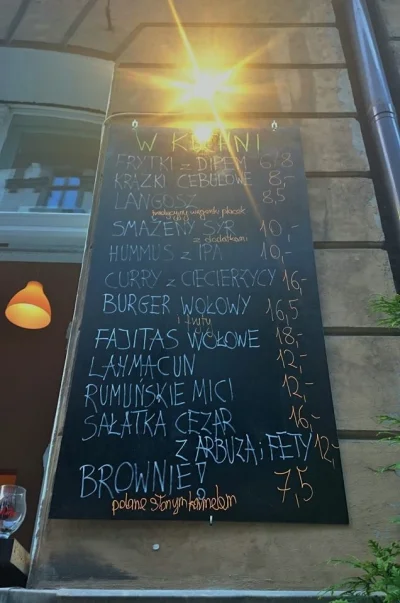 W KUCHNI
FRYTKI z DIPEM 6/8
KRĄŻKI CEBULOWE 8,-
LANGOSZ 8,5
tradycyjny węgierski placek
SMAŻONY SYR 10,-
z dodatkami
HUMMUS z IPA 10,-
CURRY z CIECIERZYCY 16,-
BURGER WOŁOWY 16,5
i fryty
FAJITAS WOŁOWE 18,-
LAHMACUN 12,-
RUMUŃSKIE MICI 12,-
SAŁATKA CEZAR 16,-
Z ARBUZA i FETY 12,-
BROWNIE! 7,5
polane słonym karmelem